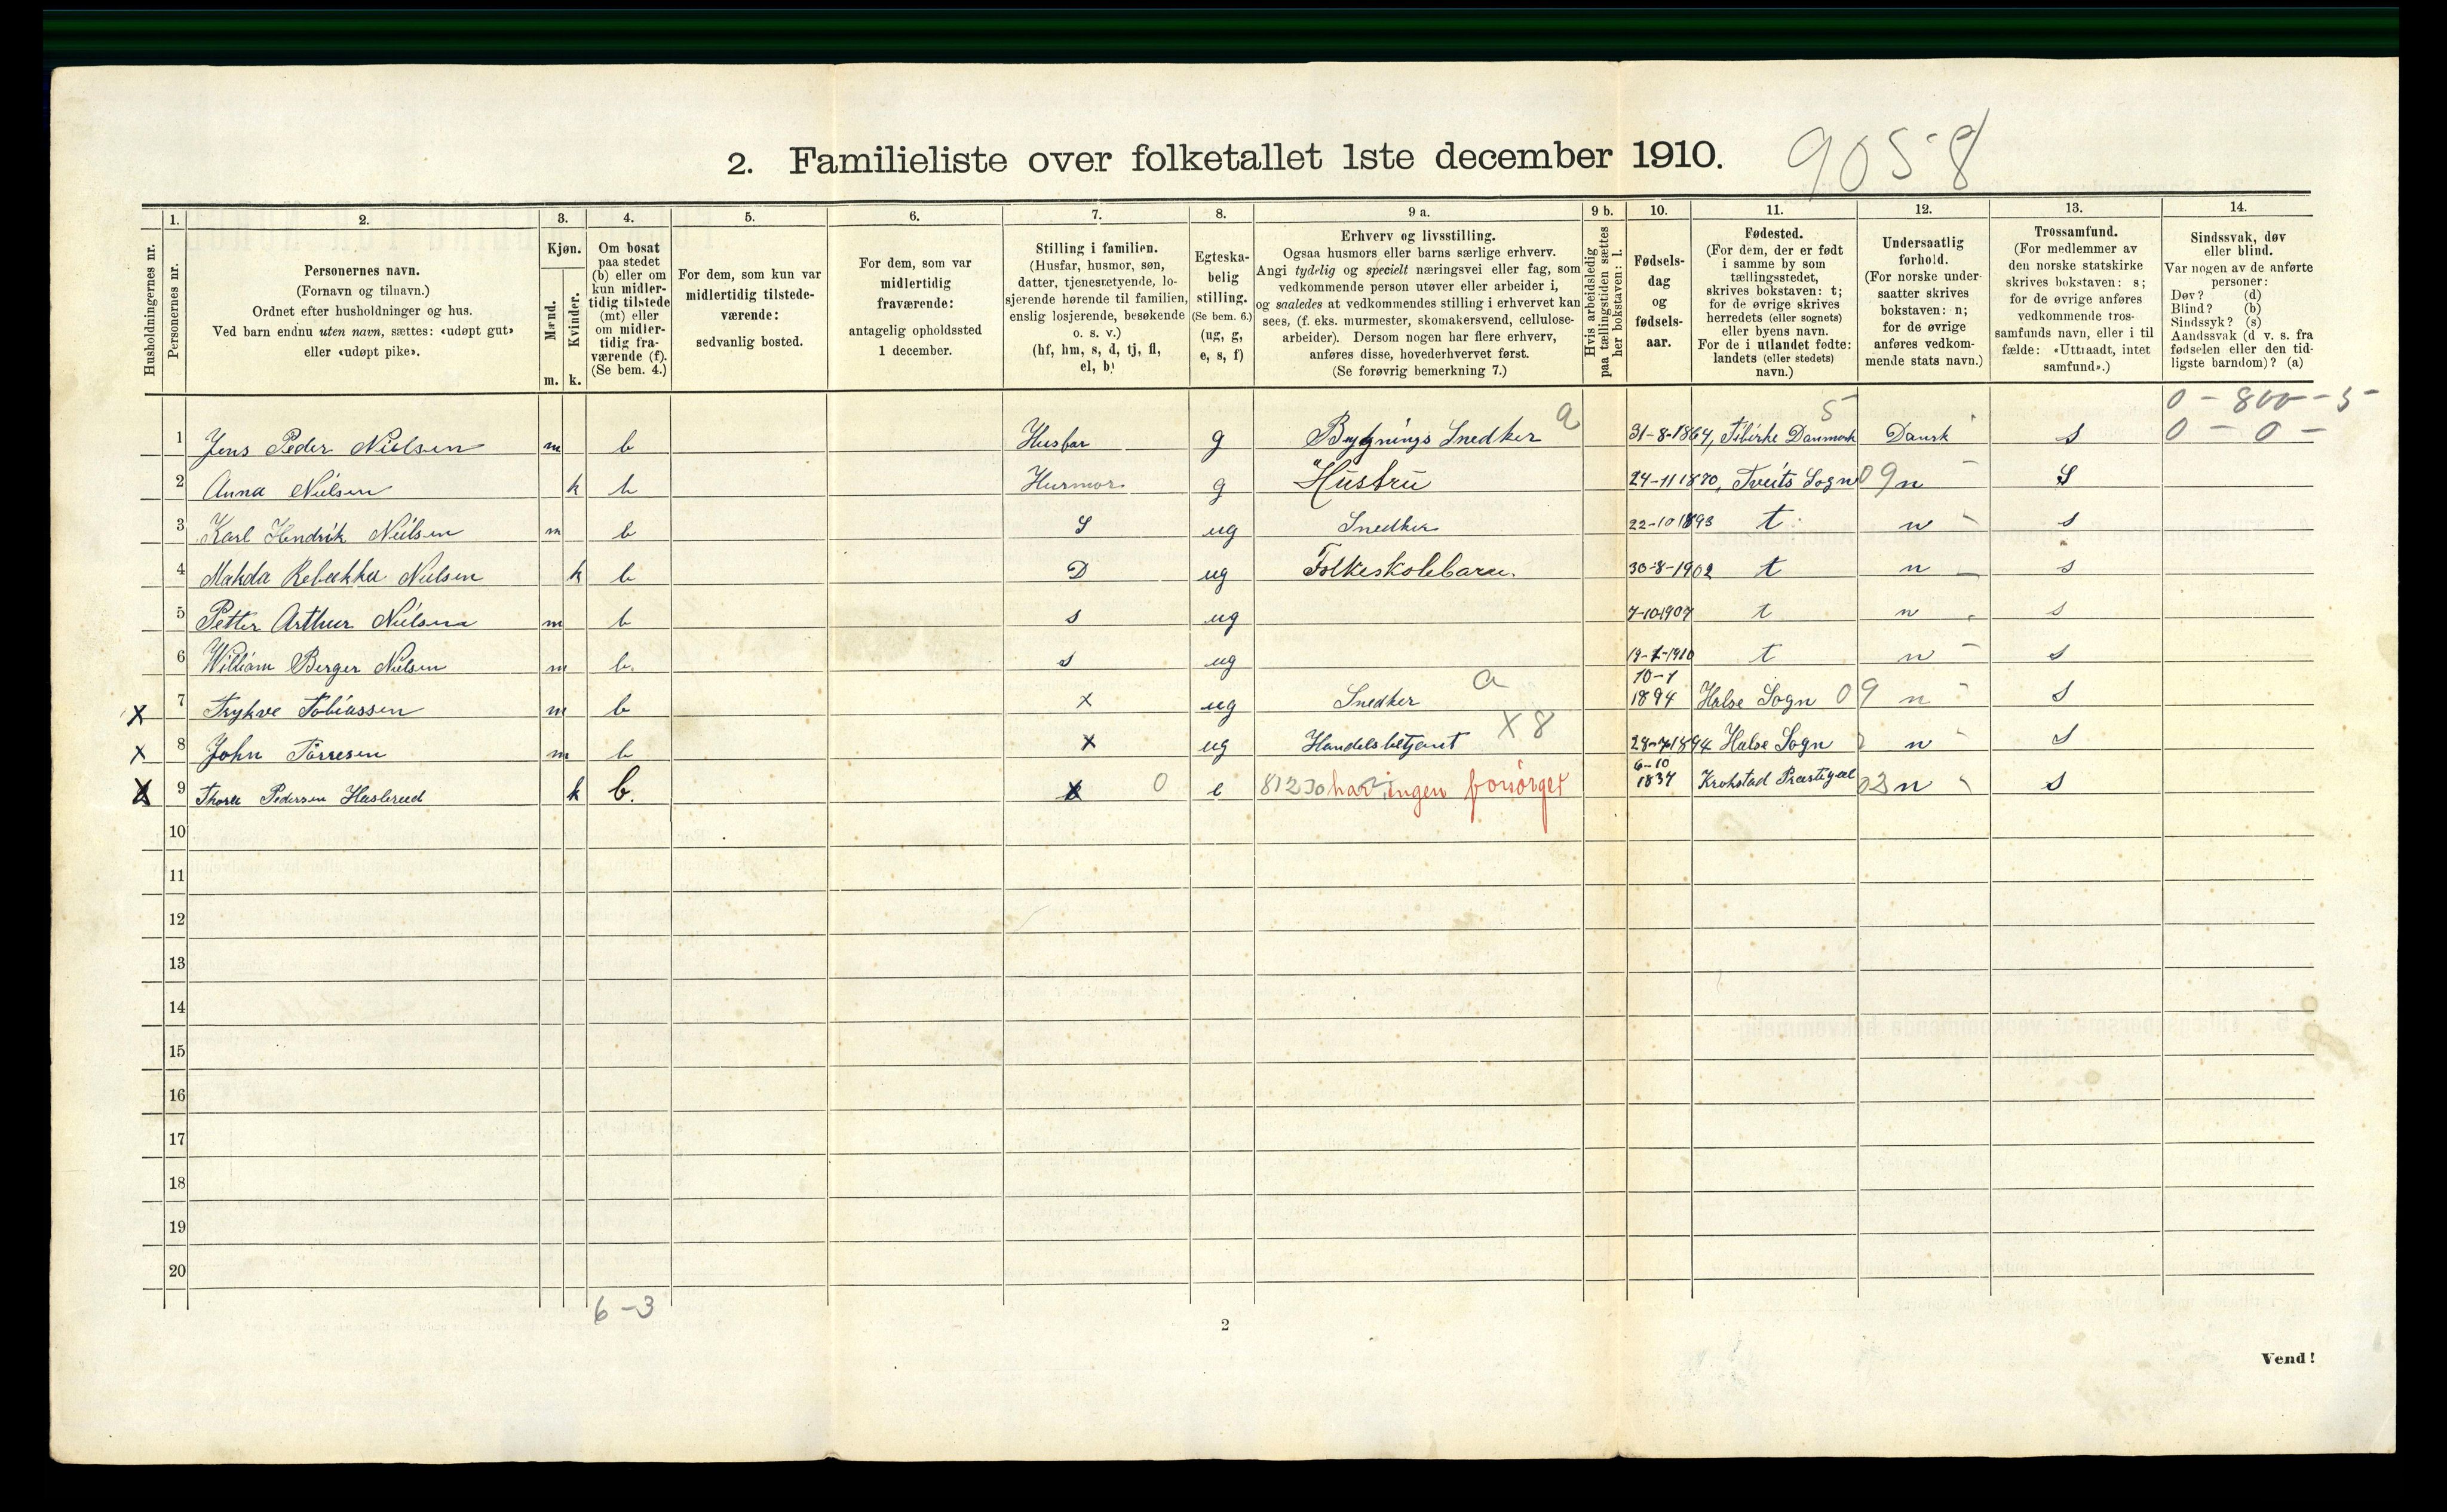 2. Familieliste over folketallet 1ste december 1910. 9058
1. 2. 3. 4. 5. 6. 7. 8. 9 a. 9 b. 10. 11. 12. 13. 14.
Husholdningernes nr.
Personernes nr.
Personernes navn.
(Fornavn og tilnavn.)
Ordnet efter husholdninger og hus.
Ved barn endnu uten navn, sættes: «udøpt gut»
eller «udøpt pike».
Kjøn.
Mænd.
Kvinder.
m. k.
Om bosat
paa stedet
(b) eller om
kun midler-
tidig tilstede
(mt) eller
om midler-
tidig fra-
værende (f).
(Se bem. 4.)
For dem, som kun var
midlertidig tilstede-
værende:
sedvanlig bosted.
For dem, som var
midlertidig
fraværende:
antagelig opholdssted
1 december.
Stilling i familien.
(Husfar, husmor, søn,
datter, tjenestetyende, lo-
sjerende hørende til familien,
enslig losjerende, besøkende
o. s. v.)
(hf, hm, s, d, tj, fl,
el, b)
Egteska-
belig
stilling.
(Se bem. 6.)
(ug, g,
e, s, f)
Erhverv og livsstilling.
Ogsaa husmors eller barns særlige erhverv.
Angi tydelig og specielt næringsvei eller fag, som
vedkommende person utøver eller arbeider i,
og saaledes at vedkommendes stilling i erhvervet kan
sees, (f. eks. murmester, skomakersvend, cellulose-
arbeider). Dersom nogen har flere erhverv,
anføres disse, hovederhvervet først.
(Se forøvrig bemerkning 7.)
Hvis arbeidsledig
paa tællingstiden sættes
her bokstaven: l.
Fødsels-
dag
og
fødsels-
aar.
Fødested.
(For dem, der er født
i samme by som
tællingsstedet,
skrives bokstaven: t;
for de øvrige skrives
herredets (eller sognets)
eller byens navn.
For de i utlandet fødte:
landets (eller stedets)
navn.)
Undersaatlig
forhold.
(For norske under-
saatter skrives
bokstaven: n;
for de øvrige
anføres vedkom-
mende stats navn.)
Trossamfund.
(For medlemmer av
den norske statskirke
skrives bokstaven: s;
for de øvrige anføres
vedkommende tros-
samfunds navn, eller i til
fælde: «Uttraadt, intet
samfund».)
Sindssvak, døv
eller blind.
Var nogen av de anførte
personer:
Døv? (d)
Blind? (b)
Sindssyk? (s)
Aandssvak (d v. s. fra
fødselen eller den tid-
ligste barndom)? (a)
5 0 - 800 - 5 -
1 Jens Peder Nielsen m b Husfar g Bygnings Snedker a 31-8-1864, Tibirke Danmark Dansk s 0 - 0 -
2 Anna Nielsen k b Husmor g Hustru 24-11 1870, Tveits Sogn 09 n S
3 Karl Hendrik Nielsen m b S ug Snedker 22-10 1893 t n s
4 Makda Rebekka Nielsen k b D ug Folkeskolebarn. 30-8-1902 t n s
5 Petter Arthur Nielsen m b s ug 7-10-1907 t n s
6 William Berger Nielsen m b. s ug 19-1-1910 t n s
X 7 Trykve Tobiassen m b X ug Snedker a 10-1 1894 Halse Sogn 09 n s
X 8 John Tørresen m b X ug Handelsbetjent X8 28-7-1894 Halse Sogn n s
X 9 Thora Pedersen Haslerud k b. X 0 e 81230 har ingen forsørget 6-10 1837 Krokstad Præstegjæl 02 n s
10
11
12
13
14
15
16
17
18
19
20
6-3
2
Vend!